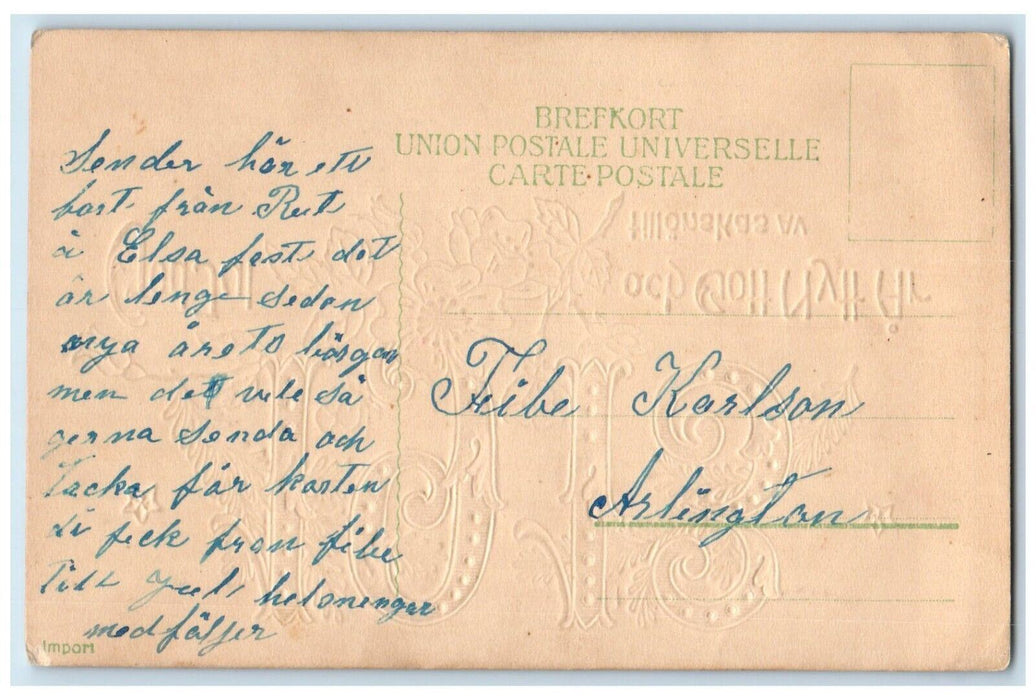 BREFKORT
UNION POSTALE UNIVERSELLE
CARTE POSTALE
Sender här ett
kort från Rut
å Elsa fest det
är lenge sedan
nya årets börgan
men det vele så
gerna senda och
tacka får korten
di feck fron febe
till Jul helsnengar
medfäljer
Feibe Karlson
Arlington
tillönskas av
och Gott Nytt År
Import